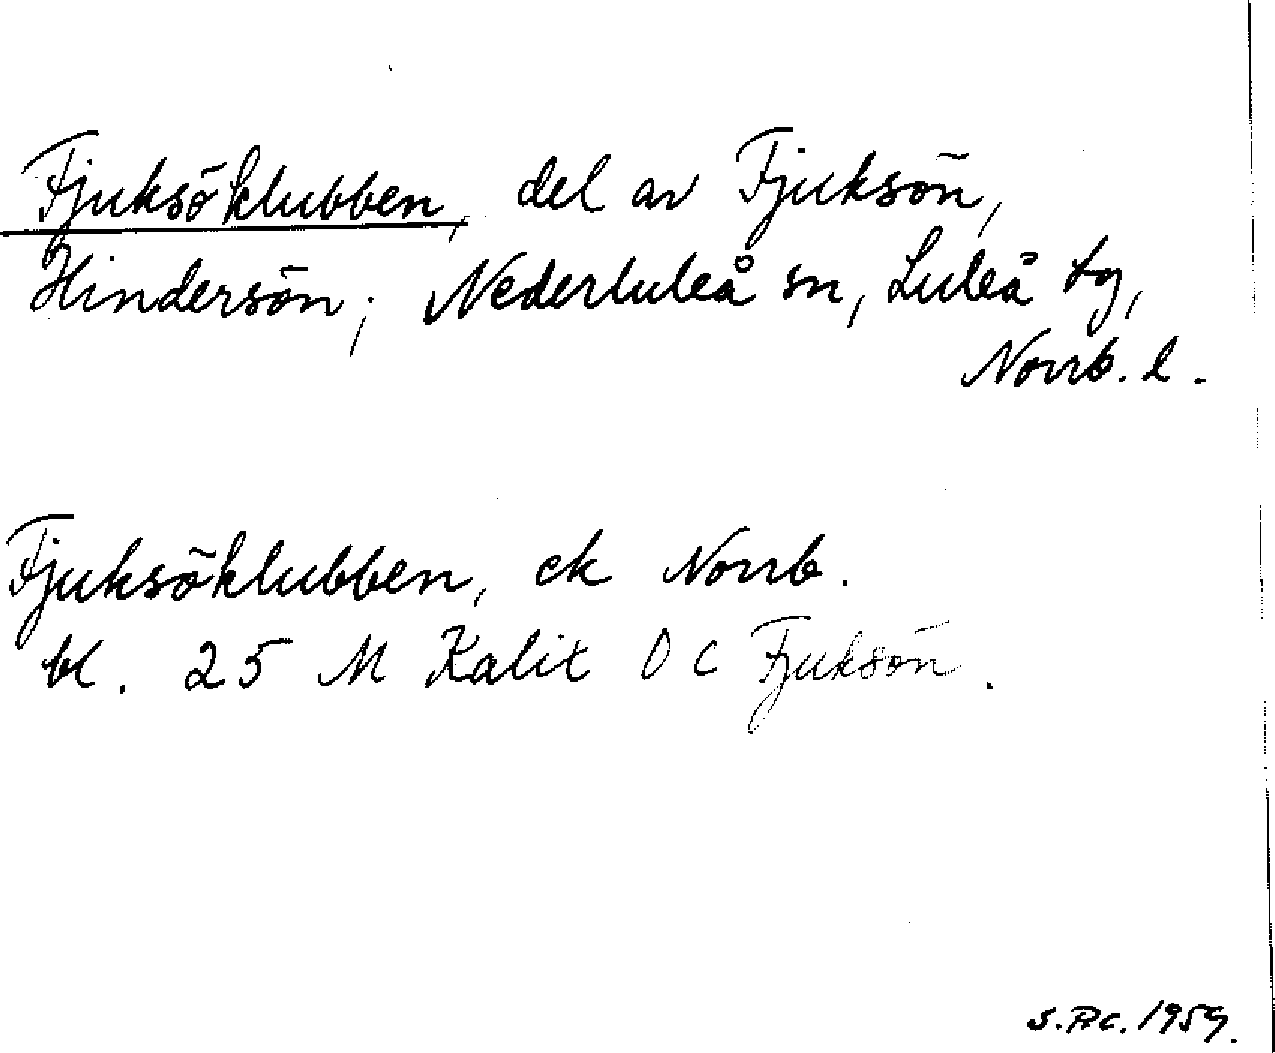 Fjuksöklubben, del av Fjuksön,
Hindersön; Nederluleå sn, Luleå tg,
Norrb. l.
Fjuksöklubben, ek Norrb.
bl. 25 M Kalix O C Fjuksön.
S.Rc. 1959.